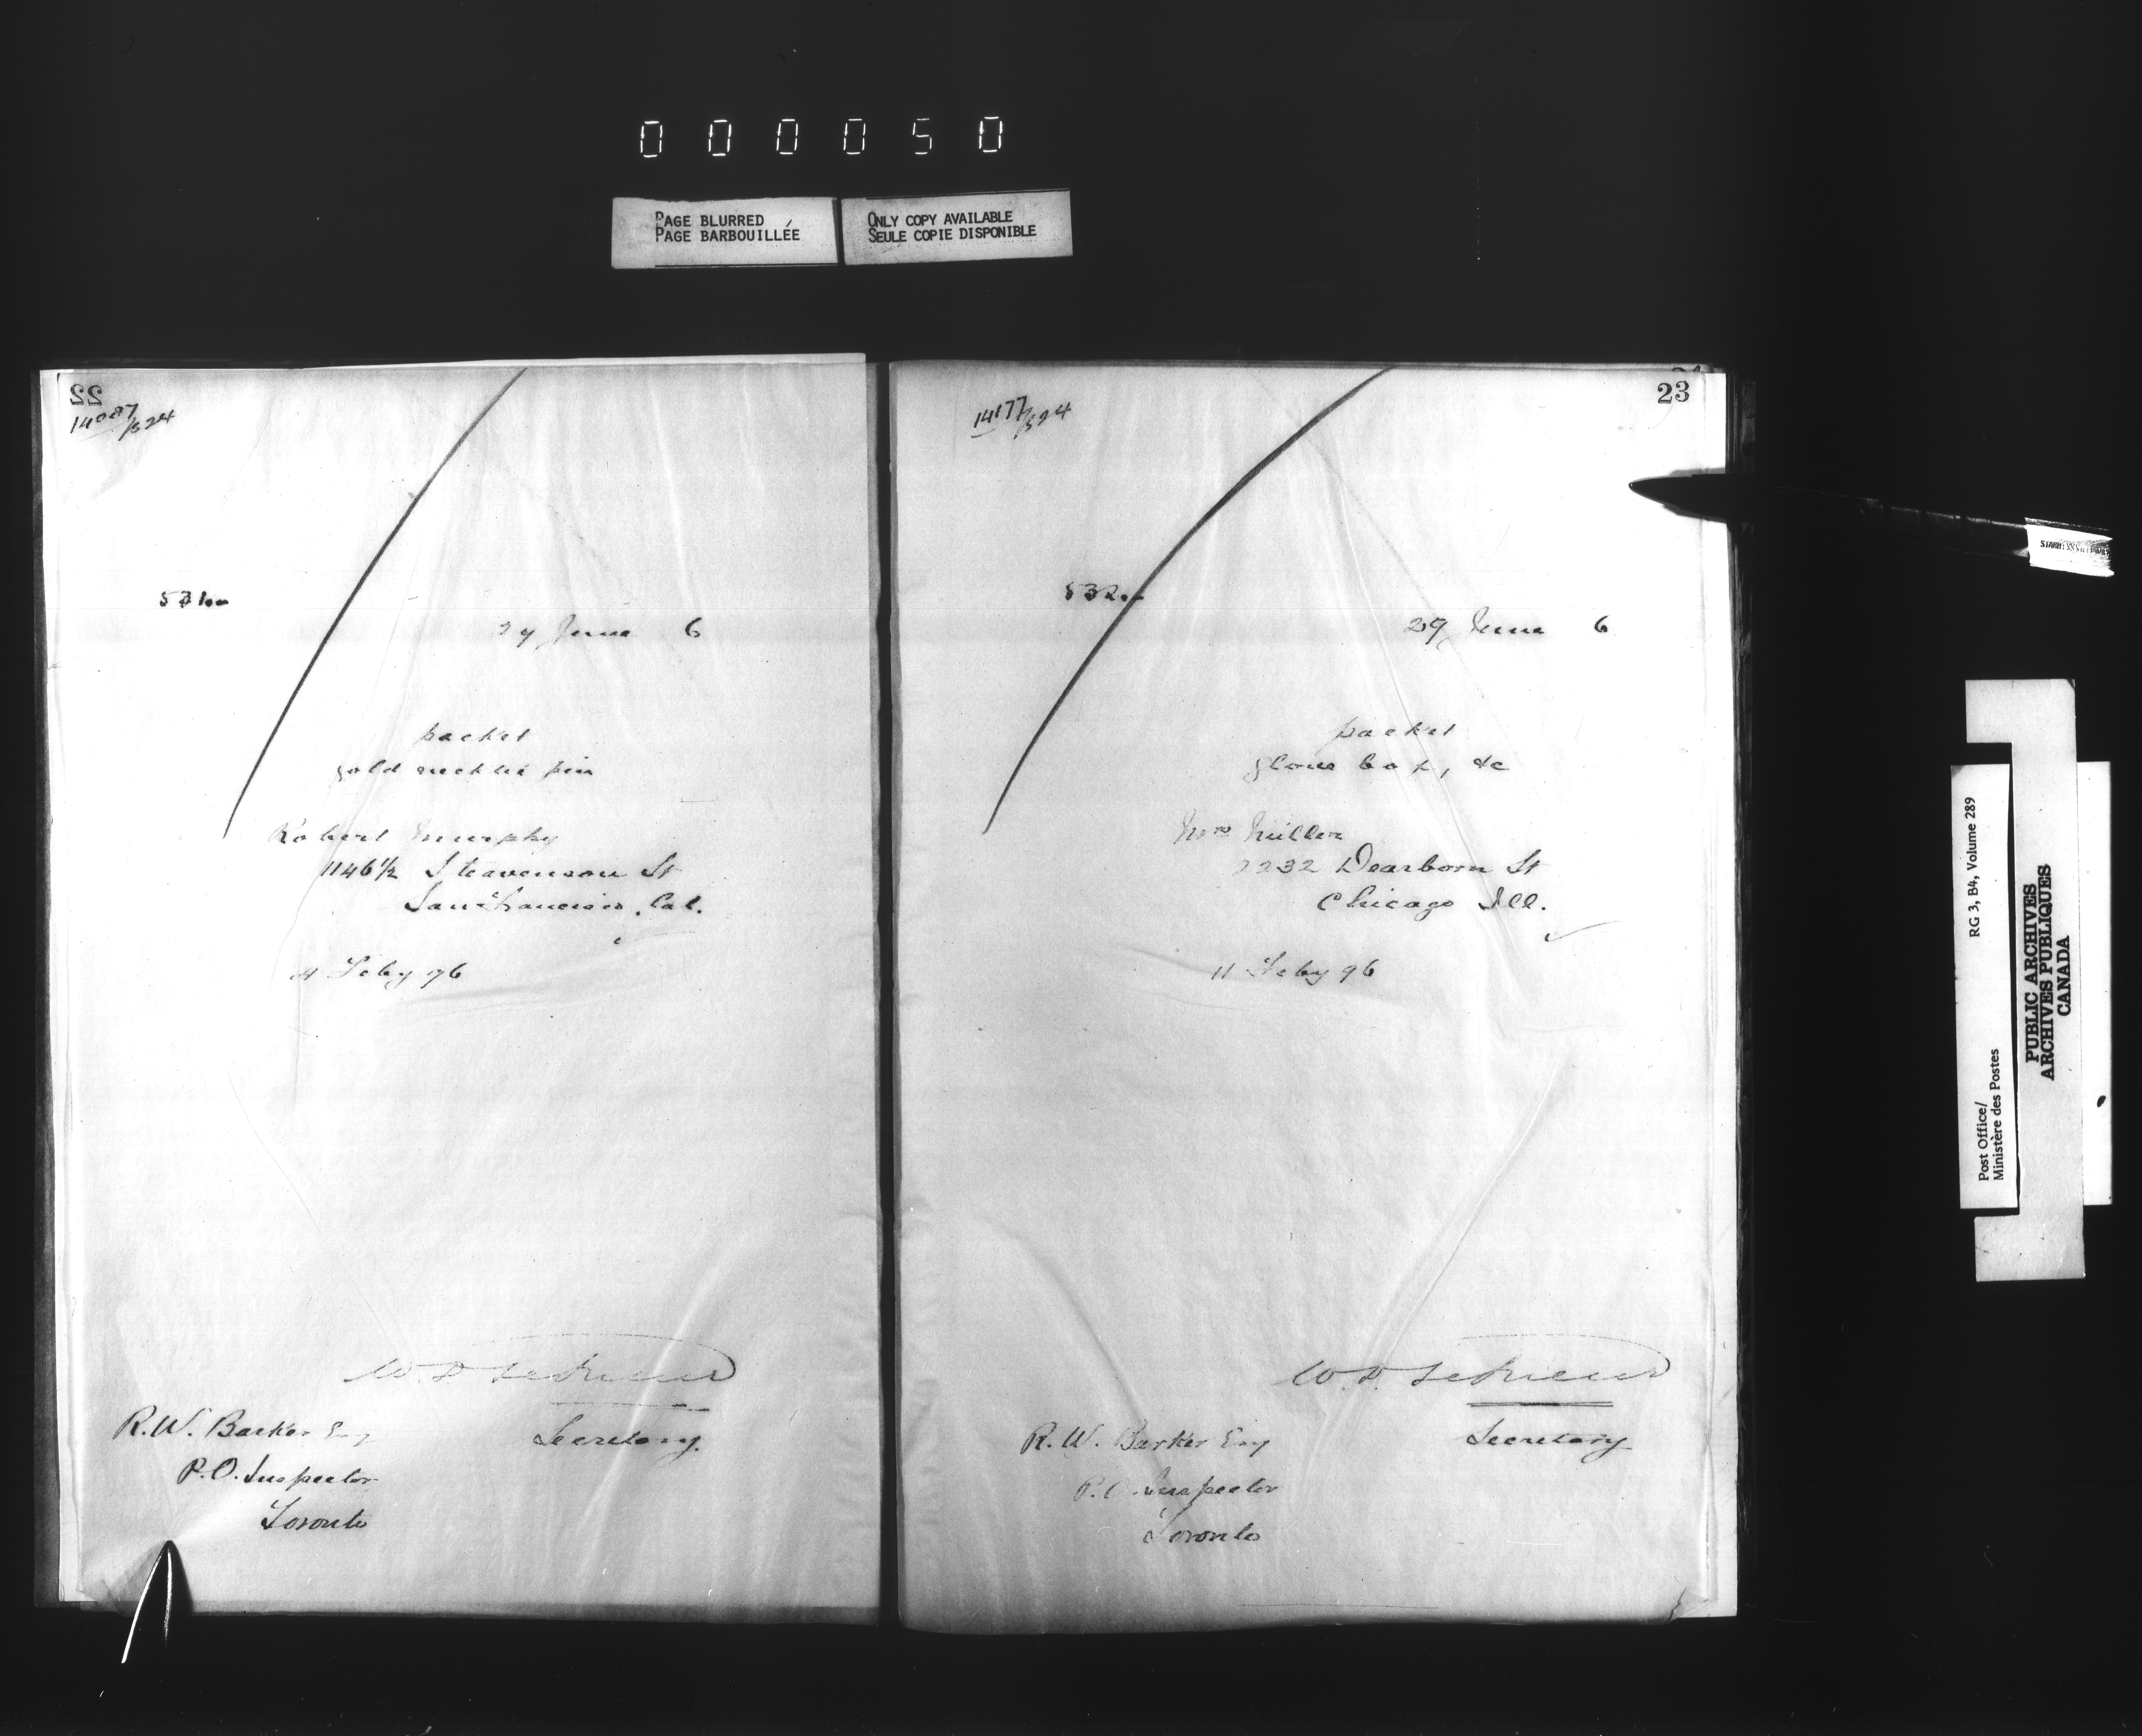 000050
PAGE BLURRED
PAGE BARBOUILLÉE
ONLY COPY AVAILABLE
SEULE COPIE DISPONIBLE
22
14087/524
531
29 June 6
packet
gold necktie pin
Robert Murphy
1146 1/2 Steavenson St
San Francisco, Cal.
4 Feby 96
Secretary.
R.W. Barker Esq
P.O. Inspector
Toronto
23
14177/524
532
29 June 6
packet
glove box, &c
Mrs Miller
2232 Dearborn St
Chicago Ill.
11 Feby 96
Secretary
R. W. Barker Esq
P.O. Inspector
Toronto
Post Office/
Ministère des Postes
RG 3, B4, Volume 289
PUBLIC ARCHIVES
ARCHIVES PUBLIQUES
CANADA